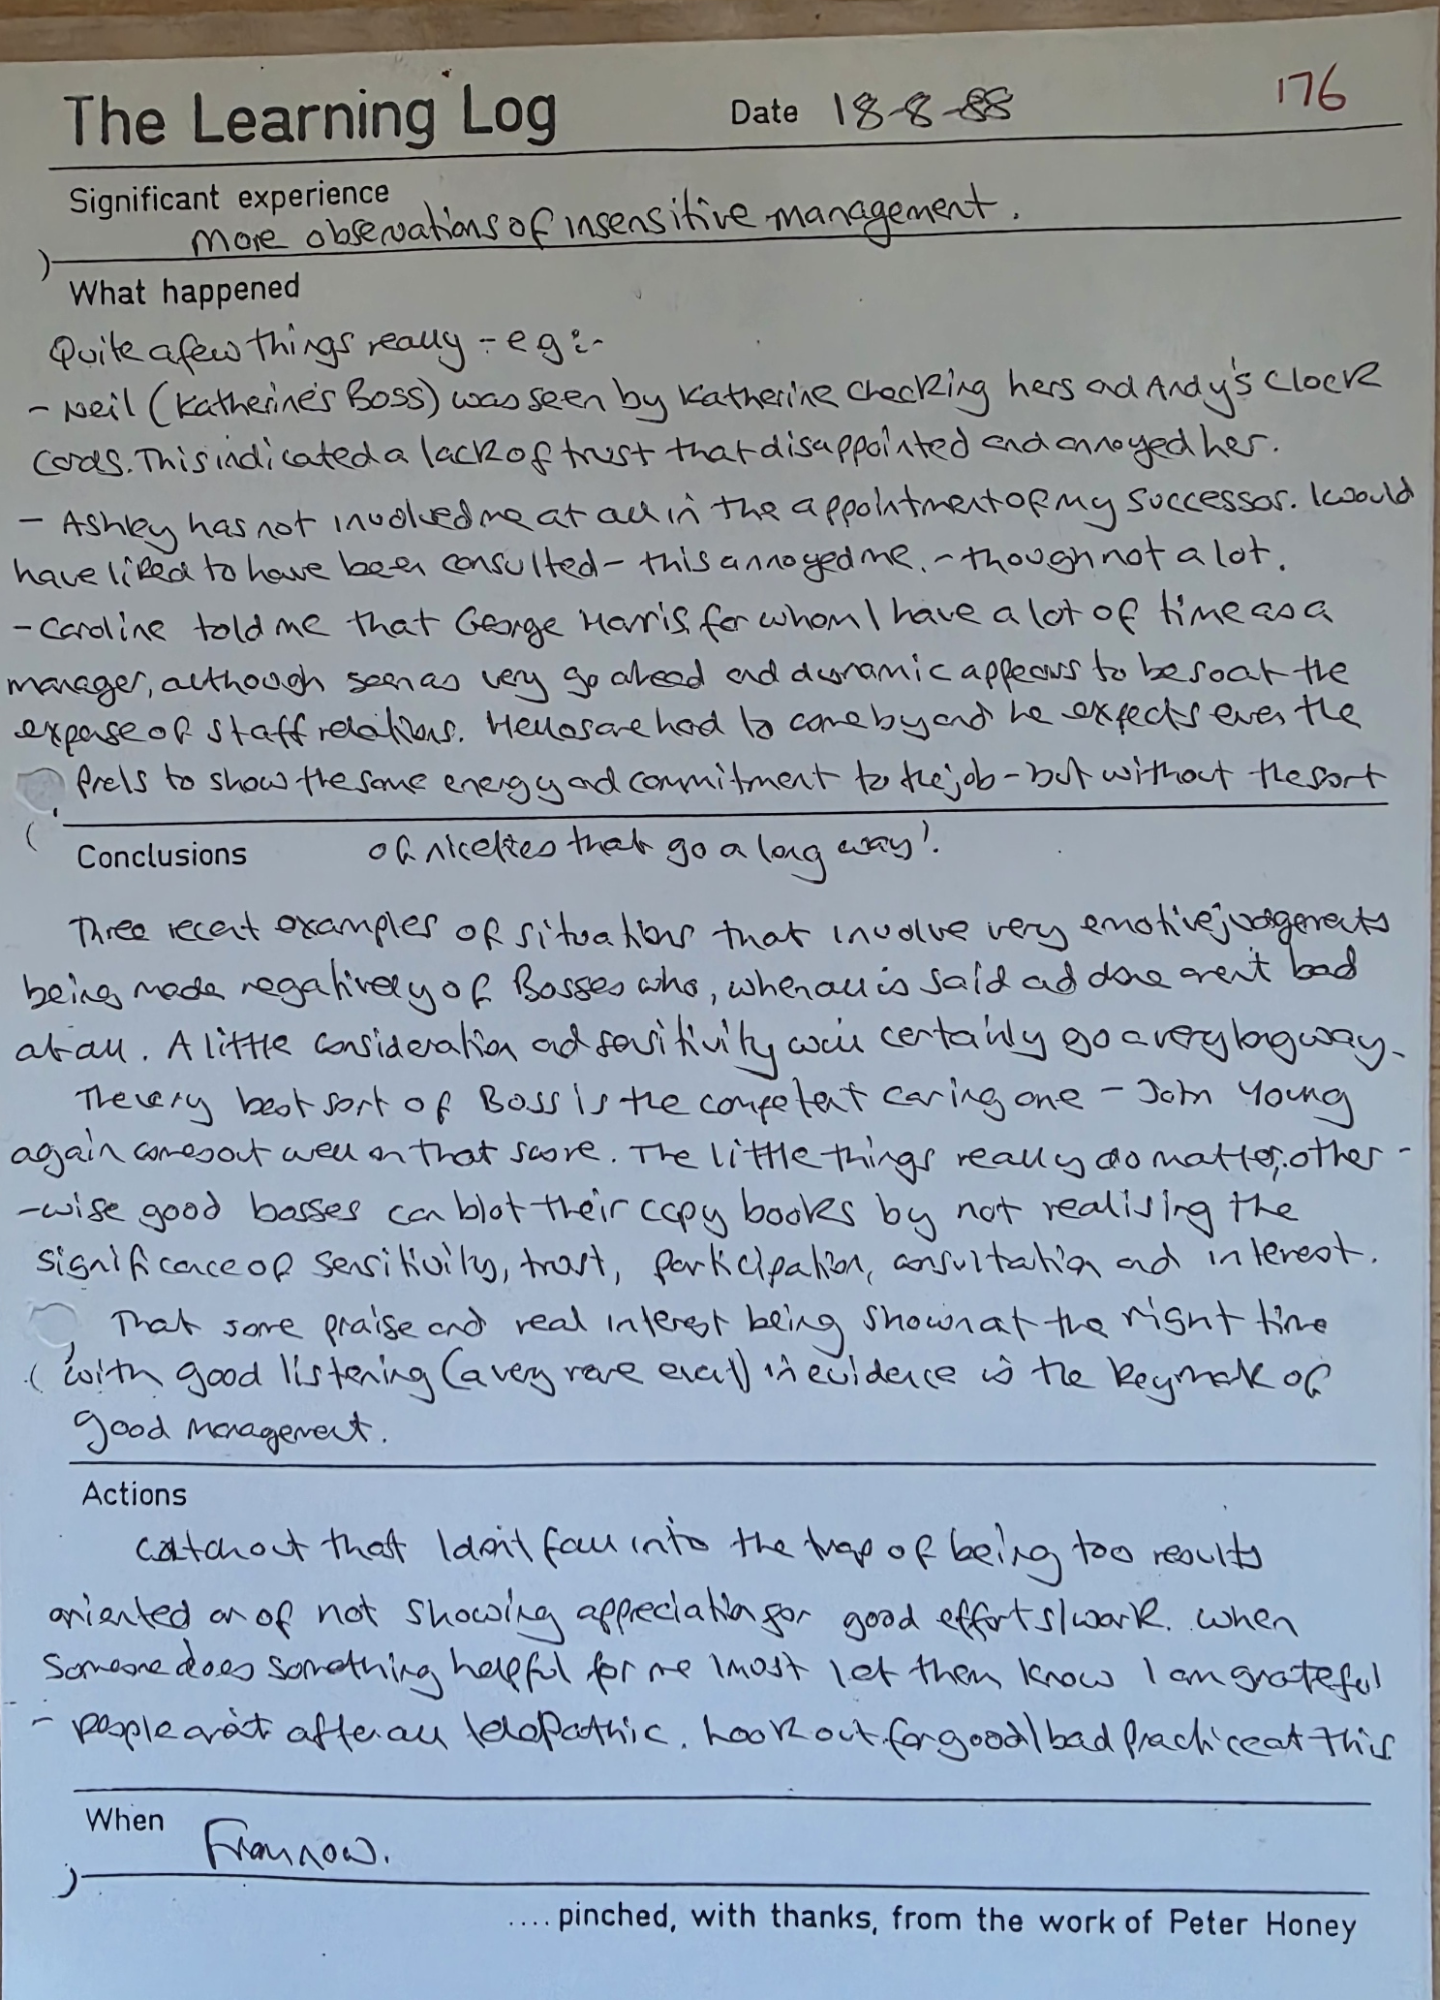 The Learning Log Date 18-8-88 176
Significant experience
More observations of insensitive management.
What happened
Quite a few things really - eg:-
- Neil (Katherine's Boss) was seen by Katherine checking hers and Andy's Clock
Cards. This indicated a lack of trust that disappointed and annoyed her.
- Ashley has not involved me at all in the appointment of my successor. I would
have liked to have been consulted - this annoyed me. - though not a lot.
- Caroline told me that George Harris, for whom I have a lot of time as a
manager, although seen as very go ahead and dynamic appears to be so at the
expense of staff relations. Hellos are hard to come by and he expects even the
Prels to show the same energy and commitment to the job - but without the sort
of niceties that go a long way!
Conclusions
Three recent examples of situations that involve very emotive judgements
being made negatively of Bosses who, when all is said and done aren't bad
at all. A little consideration and sensitivity will certainly go a very long way.
The very best sort of Boss is the competent caring one - John Young
again comes out well on that score. The little things really do matter, other -
-wise good bosses can blot their copy books by not realising the
significance of sensitivity, trust, participation, consultation and interest.
That some praise and real interest being shown at the right time
with good listening (a very rare event) in evidence is the keymark of
good management.
Actions
Watch out that I don't fall into the trap of being too results
oriented or of not showing appreciation for good efforts/work. When
Someone does something helpful for me I must let them know I am grateful
- people aren't after all telepathic. Look out for good/bad practice at this
When
From now.
.... pinched, with thanks, from the work of Peter Honey